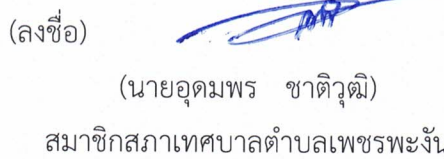 (ลงชื่อ)
(นายอุดมพร ชาติวุฒิ)
สมาชิกสภาเทศบาลตำบลเพชรพะงัน